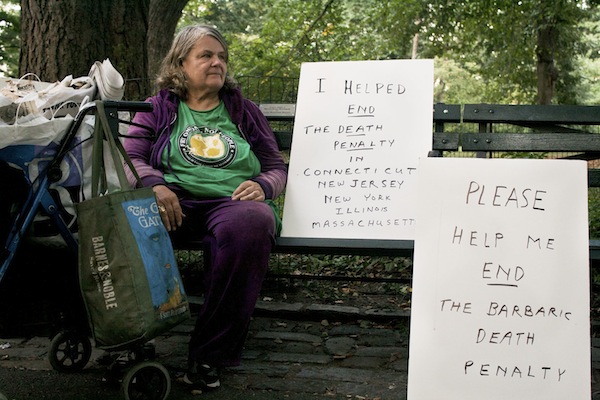 I HELPED
END
THE DEATH
PENALTY
IN
CONNECTICUT
NEW JERSEY
NEW YORK
ILLINOIS
MASSACHUSETT
PLEASE
HELP ME
END
THE BARBARIC
DEATH
PENALTY
The G
GAT
BARNES&NOBLE